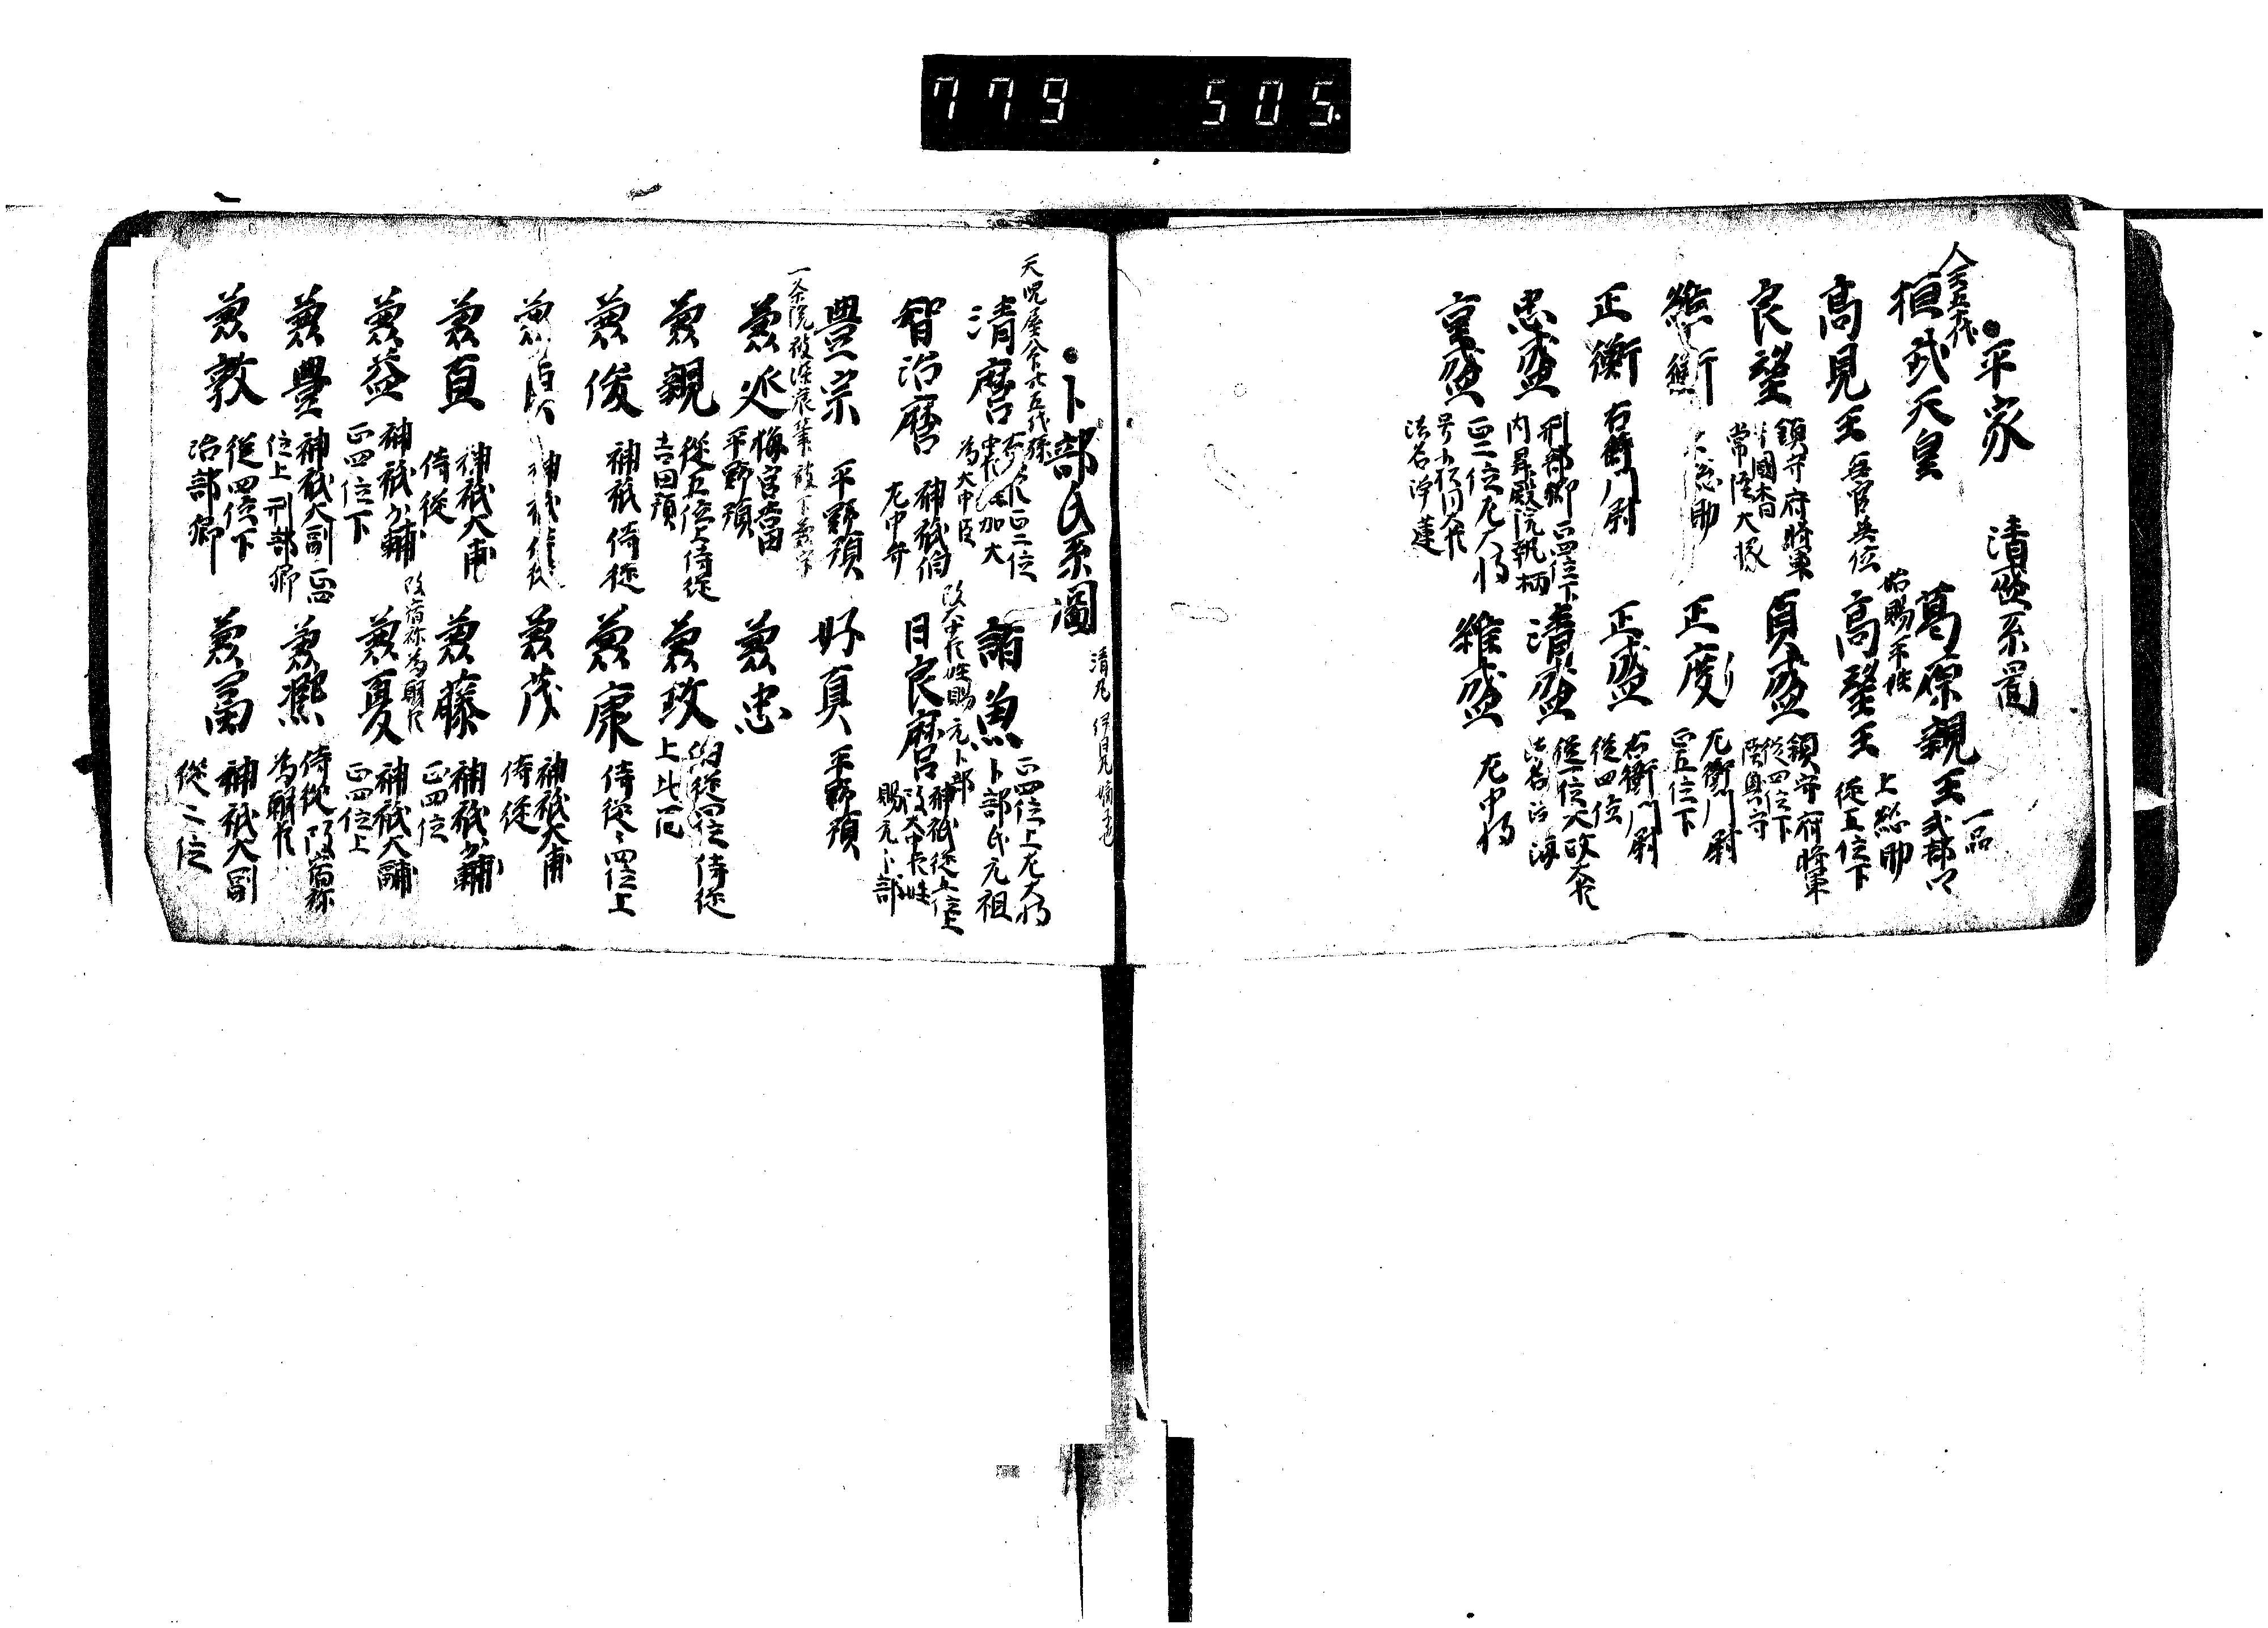 779 505
平家　清盛系圖
人王五十代
桓武天皇
葛原親王 一品 式部卿
始賜平姓
高見王 無官無位
高望王 上総助 従五位下
良望 鎮守府将軍 常陸大掾 國香
貞盛 鎮守府将軍 従四位下 陸奥守
維衡
正度 左衛門尉 正五位下
正衡 右衛門尉
正盛 右衛門尉 従四位
忠盛 刑部卿 正四位下 内昇殿院執柄
清盛 従一位太政大臣 法名浄海
重盛 正二位左大将 号小松内大臣 法名浄蓮
維盛 左中将
卜部氏系圖
天児屋命
清麿 右大臣正二位 中臣加大為大中臣
諸魚 正四位上左大将 卜部氏元祖
智治麿 神祇伯 左中弁
改大中臣姓賜元卜部
日良麿 神祇従五位上 改大中臣姓賜元卜部
豊宗 平野預
好真 平野預
兼延 梅宮當 平野預
兼忠
兼親 従五位上侍従 吉田預
兼政 伯従四位侍従
兼俊 神祇侍従
兼康 侍従従四位上
兼茂 神祇大甫 侍従
兼直 神祇大甫 侍従
兼藤 神祇少輔 正四位
改宿祢為朝臣
兼益 神祇少輔 正四位下
兼夏 神祇大副 正四位上
兼豊 神祇大副 正四位上 刑部卿
兼熈 侍従 改宿祢為朝臣
兼敦 従四位下 治部卿
兼富 神祇大副 従二位